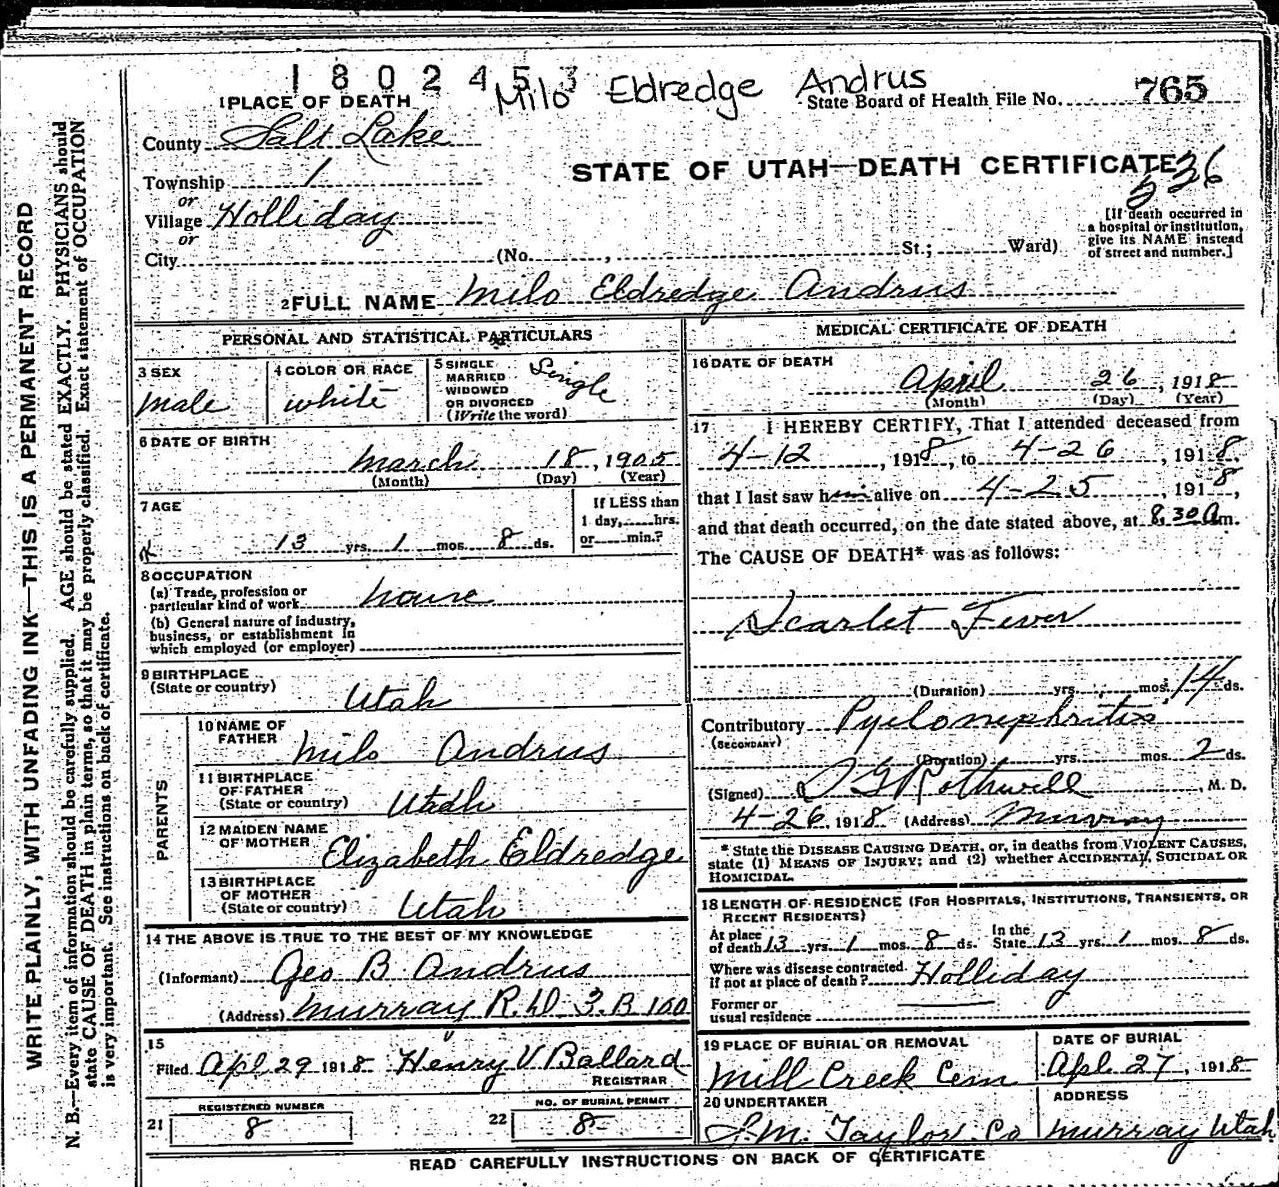 1802453
Milo Eldredge Andrus
1 PLACE OF DEATH
State Board of Health File No. 765
County Salt Lake
STATE OF UTAH—DEATH CERTIFICATE
536
Township 1
or
Village Holliday
or
City (No. , St.; Ward)
[If death occurred in
a hospital or institution,
give its NAME instead
of street and number.]
2 FULL NAME Milo Eldredge Andrus
PERSONAL AND STATISTICAL PARTICULARS
3 SEX
male
4 COLOR OR RACE
white
5 SINGLE
MARRIED
WIDOWED
OR DIVORCED
(Write the word)
Single
6 DATE OF BIRTH
March 18, 1905
(Month) (Day) (Year)
7 AGE
13 yrs. 1 mos. 8 ds.
If LESS than
1 day, hrs.
or min.?
8 OCCUPATION
(a) Trade, profession or
particular kind of work
(b) General nature of industry,
business, or establishment in
which employed (or employer)
9 BIRTHPLACE
(State or country)
Utah
PARENTS
10 NAME OF
FATHER
Milo Andrus
11 BIRTHPLACE
OF FATHER
(State or country)
Utah
12 MAIDEN NAME
OF MOTHER
Elizabeth Eldredge
13 BIRTHPLACE
OF MOTHER
(State or country)
Utah
14 THE ABOVE IS TRUE TO THE BEST OF MY KNOWLEDGE
(Informant) Geo B Andrus
(Address) Murray R. D 3. B 100
15
Filed Apl 29 1918 Henry V Ballard
REGISTRAR
21
REGISTERED NUMBER
8
22
NO. OF BURIAL PERMIT
8
MEDICAL CERTIFICATE OF DEATH
16 DATE OF DEATH
April 26, 1918
(Month) (Day) (Year)
17 I HEREBY CERTIFY, That I attended deceased from
4-12, 1918, to 4-26, 1918.
that I last saw him alive on 4-25, 1918,
and that death occurred, on the date stated above, at 8.30 A m.
The CAUSE OF DEATH* was as follows:
Scarlet Fever
(Duration) yrs. mos. 14 ds.
Contributory Pyelonephritis
(SECONDARY)
(Duration) yrs. mos. 2 ds.
(Signed) Rothwell, M. D.
4-26, 1918 (Address) Murray
* State the DISEASE CAUSING DEATH, or, in deaths from VIOLENT CAUSES,
state (1) MEANS OF INJURY; and (2) whether ACCIDENTAL, SUICIDAL OR
HOMICIDAL.
18 LENGTH OF RESIDENCE (FOR HOSPITALS, INSTITUTIONS, TRANSIENTS, OR
RECENT RESIDENTS)
At place
of death 13 yrs. 1 mos. 8 ds.
In the
State 13 yrs. 1 mos. 8 ds.
Where was disease contracted
if not at place of death? Holliday
Former or
usual residence
19 PLACE OF BURIAL OR REMOVAL
Mill Creek Cem
DATE OF BURIAL
Apl. 27, 1918
20 UNDERTAKER
S. M. Taylor Co
ADDRESS
Murray Utah
READ CAREFULLY INSTRUCTIONS ON BACK OF CERTIFICATE
WRITE PLAINLY, WITH UNFADING INK—THIS IS A PERMANENT RECORD
N. B.—Every item of information should be carefully supplied. AGE should be stated EXACTLY. PHYSICIANS should
state CAUSE OF DEATH in plain terms, so that it may be properly classified. Exact statement of OCCUPATION
is very important. See instructions on back of certificate.